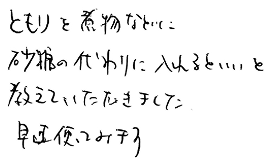 ともりを煮物などに
砂糖の代わりに入れるといいと
教えていただきました
早速使ってみます